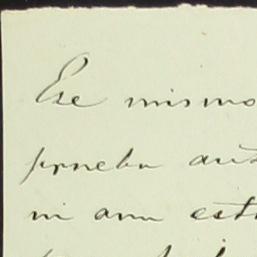 Ese mismo
prueba aus
ni aun est